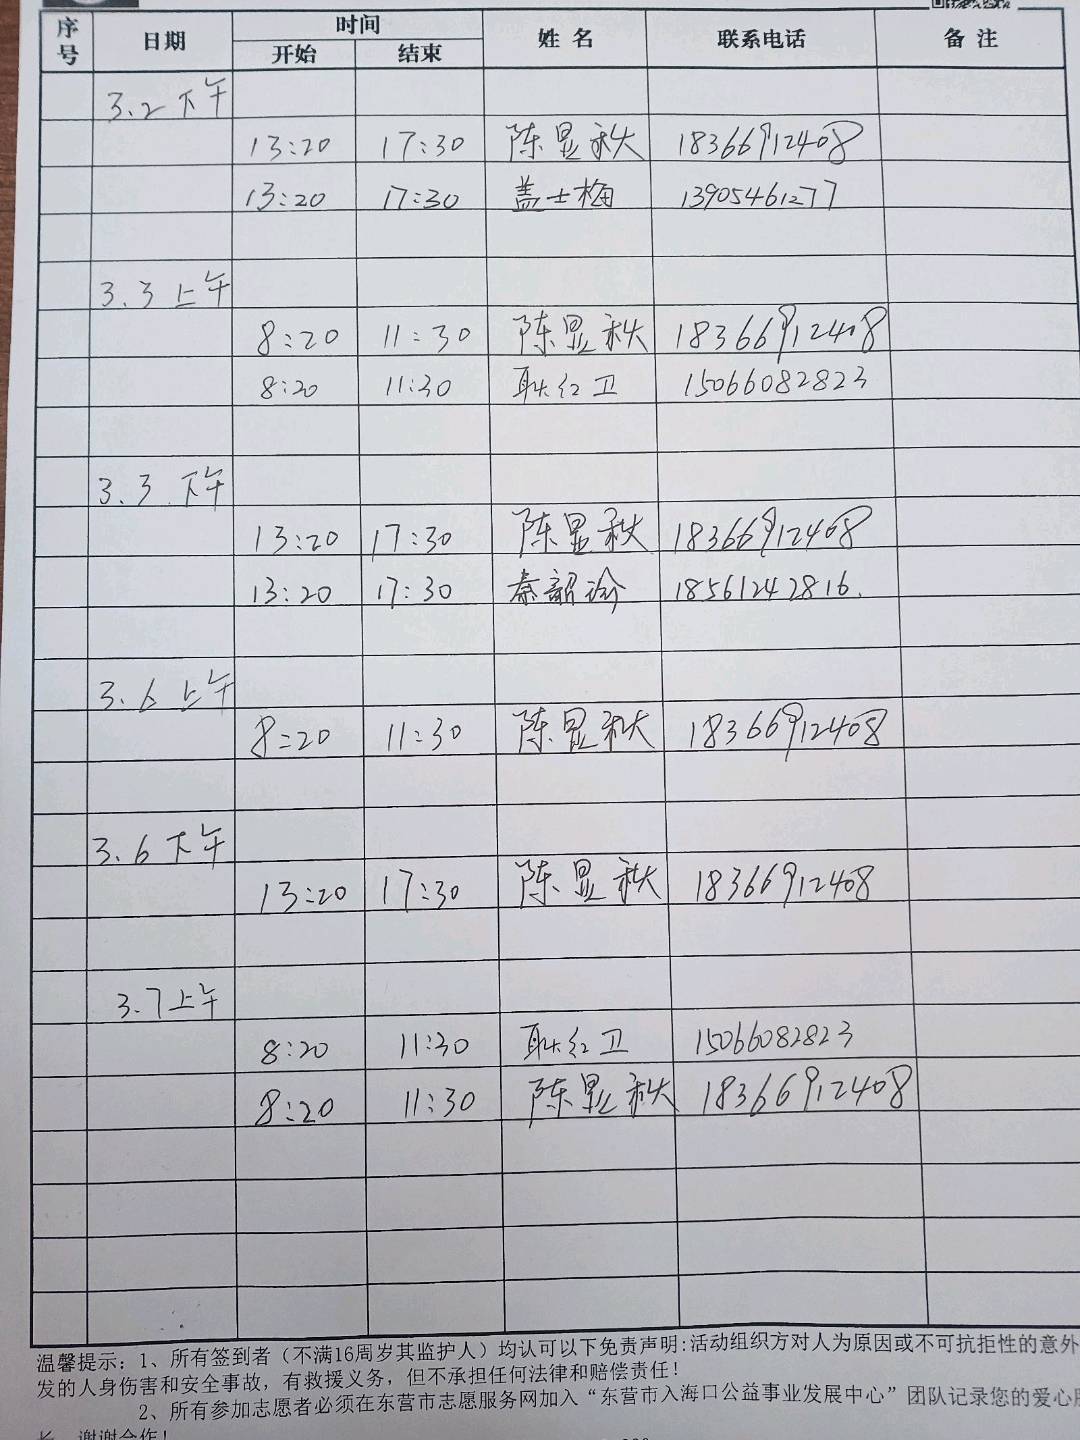 序号 日期 时间 姓 名 联系电话 备 注
开始 结束
3.2下午
13:20 17:30 陈显秋 18366912408
13:20 17:30 盖士梅 13905461277
3.3上午
8:20 11:30 陈显秋 18366912408
8:20 11:30 耿红卫 15066082823
3.3下午
13:20 17:30 陈显秋 18366912408
13:20 17:30 秦韶 18561242816.
3.6上午
8:20 11:30 陈显秋 18366912408
3.6下午
13:20 17:30 陈显秋 18366912408
3.7上午
8:20 11:30 耿红卫 15066082823
8:20 11:30 陈显秋 18366912408
温馨提示：1、所有签到者（不满16周岁其监护人）均认可以下免责声明:活动组织方对人为原因或不可抗拒性的意外
发的人身伤害和安全事故，有救援义务，但不承担任何法律和赔偿责任！
2、所有参加志愿者必须在东营市志愿服务网加入“东营市入海口公益事业发展中心”团队记录您的爱心
长，谢谢合作！